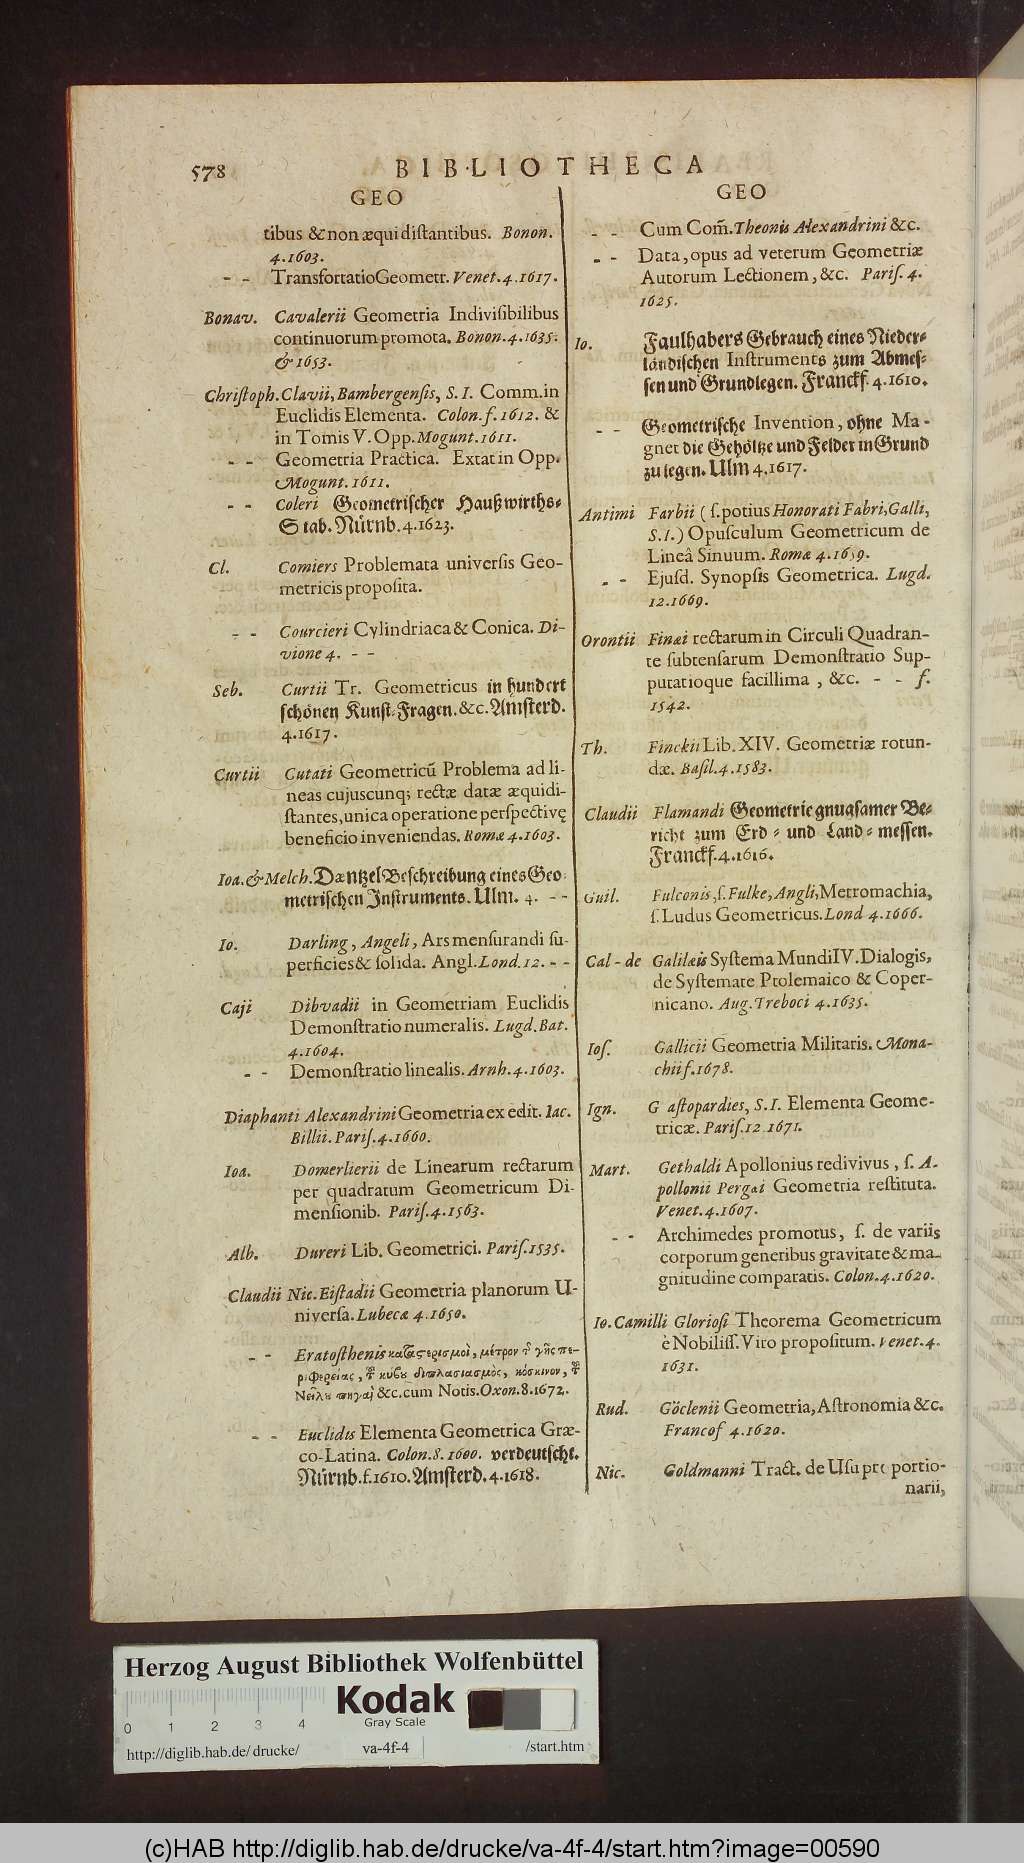 578
BIBLIOTHECA
GEO
tibus & non æquidiſtantibus. Bonon.
4.1603.
- - Transfortatio Geometr. Venet. 4. 1617.
Bonav. Cavalerii Geometria Indiviſibilibus
continuorum promota. Bonon. 4. 1635.
& 1653.
Chriſtoph. Clavii, Bambergenſis, S. I. Comm. in
Euclidis Elementa. Colon. f. 1612. &
in Tomis V. Opp. Mogunt. 1611.
- - Geometria Practica. Extat in Opp.
Mogunt. 1611.
- - Coleri Geometriſcher Haußwirths-
Stab. Nürnb. 4. 1623.
Cl. Comiers Problemata universis Geo-
metricis propoſita.
- - Courcieri Cylindriaca & Conica. Di-
vione 4. - -
Seb. Curtii Tr. Geometricus in hundert
ſchönen Kunſt-Fragen. &c. Amſterd.
4. 1617.
Curtii Cutati Geometricũ Problema ad li-
neas cujuscunq; rectæ datæ æquidi-
ſtantes, unica operatione perſpectivę
beneficio inveniendas. Romæ 4. 1603.
Ioa. & Melch. Dæntzel Beſchreibung eines Geo-
metriſchen Inſtruments. Ulm. 4. - -
Io. Darling, Angeli, Ars menſurandi ſu-
perficies & ſolida. Angl. Lond. 12. - -
Caji Dibvadii in Geometriam Euclidis
Demonſtratio numeralis. Lugd. Bat.
4. 1604.
- - Demonſtratio linealis. Arnh. 4. 1603.
Diaphanti Alexandrini Geometria ex edit. Iac.
Billii. Pariſ. 4. 1660.
Ioa. Domerlierii de Linearum rectarum
per quadratum Geometricum Di-
menſionib. Pariſ. 4. 1563.
Alb. Dureri Lib. Geometrici. Pariſ. 1535.
Claudii Nic. Eiſtadii Geometria planorum U-
niverſa. Lubecæ 4. 1650.
- - Eratoſthenis καταϛερισμοὶ, μέτρον τ͂ γῆς πε-
ριφερείας, τ͂ κύβου διπλασιασμὸς, κόσκινον, τ͂
Νείλου πηγαὶ &c. cum Notis. Oxon. 8. 1672.
- - Euclidis Elementa Geometrica Græ-
co-Latina. Colon. 8. 1600. verdeutſcht.
Nürnb. f. 1610. Amſterd. 4. 1618.
GEO
- - Cum Com̃. Theonis Alexandrini &c.
- - Data, opus ad veterum Geometriæ
Autorum Lectionem, &c. Pariſ. 4.
1625.
Io. Faulhabers Gebrauch eines Nieder-
ländiſchen Inſtruments zum Abmeſ-
ſen und Grundlegen. Franckf. 4. 1610.
- - Geometriſche Invention, ohne Ma-
gnet die Gehöltze und Felder in Grund
zu legen. Ulm 4. 1617.
Antimi Farbii (ſ. potius Honorati Fabri, Galli,
S. I.) Opuſculum Geometricum de
Lineâ Sinuum. Romæ 4. 1659.
- - Ejuſd. Synopſis Geometrica. Lugd.
12. 1669.
Orontii Finæi rectarum in Circuli Quadran-
te ſubtenſarum Demonſtratio Sup-
putatioque facillima, &c. - - f.
1542.
Th. Finckii Lib. XIV. Geometriæ rotun-
dæ. Baſil. 4. 1583.
Claudii Flamandi Geometrie gnugſamer Be-
richt zum Erd- und Land-meſſen.
Franckf. 4. 1616.
Guil. Fulconis, ſ. Fulke, Angli, Metromachia,
ſ. Ludus Geometricus. Lond 4. 1666.
Cal-de Galilæis Syſtema Mundi IV. Dialogis,
de Syſtemate Ptolemaico & Coper-
nicano. Aug. Treboci 4. 1635.
Ioſ. Gallicii Geometria Militaris. Mona-
chii f. 1678.
Ign. G aſtopardies, S. I. Elementa Geome-
tricæ. Pariſ. 12 1671.
Mart. Gethaldi Apollonius redivivus, ſ. A-
pollonii Pergæi Geometria reſtituta.
Venet. 4. 1607.
- - Archimedes promotus, ſ. de variis
corporum generibus gravitate & ma-
gnitudine comparatis. Colon. 4. 1620.
Io. Camilli Glorioſi Theorema Geometricum
è Nobiliſſ. Viro propoſitum. Venet. 4.
1631.
Rud. Göclenii Geometria, Aſtronomia &c.
Francof 4. 1620.
Nic. Goldmanni Tract. de Uſu proportio-
narii,
Herzog August Bibliothek Wolfenbüttel
Kodak
Gray Scale
0 1 2 3 4
http://diglib.hab.de/drucke/ va-4f-4 /start.htm
(c)HAB http://diglib.hab.de/drucke/va-4f-4/start.htm?image=00590